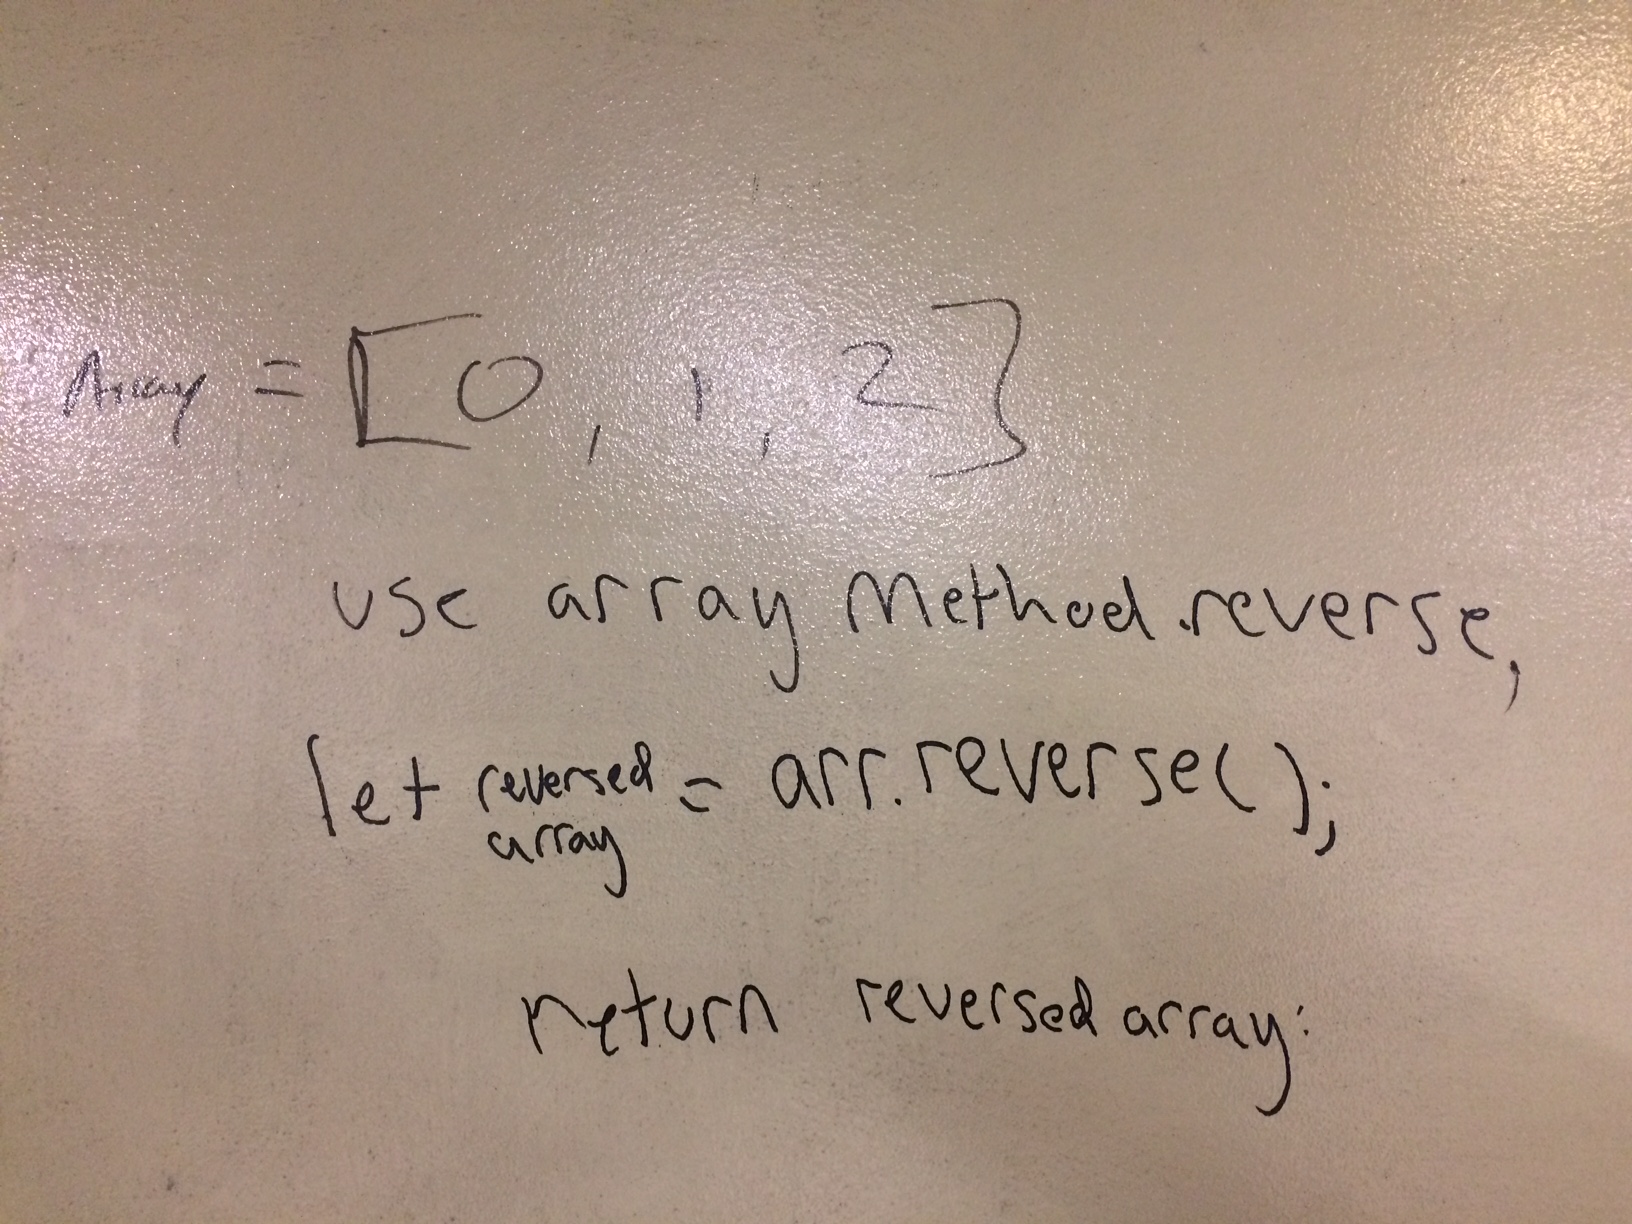 Array = [0, 1, 2]
use array Method .reverse,
let reversed array = arr.reverse();
return reversed array: